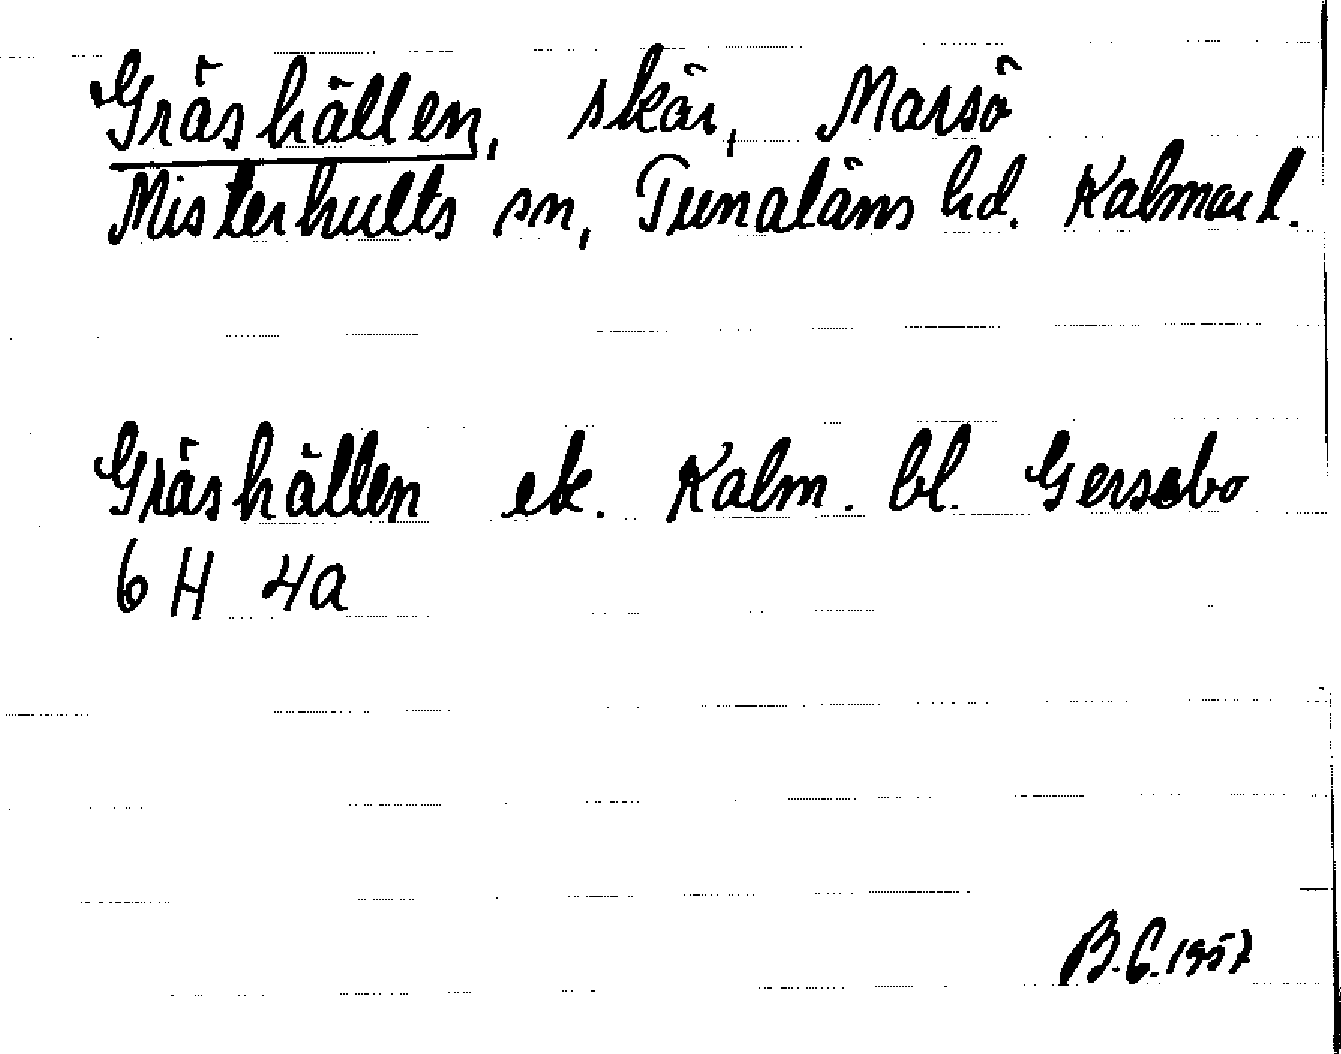 Gräshällen, skär, Marsö
Misterhults sn, Tunaläns hd. Kalmar l.
Gräshällen ek. Kalm. bl. Gersebo
6 H 4a
B.G. 1957